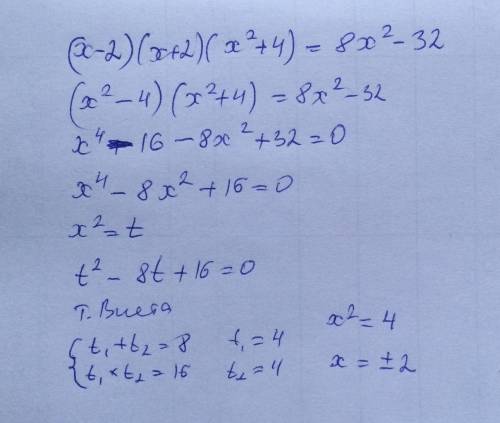 (x-2)(x+2)(x²+4) = 8x²-32
(x²-4)(x²+4) = 8x²-32
x⁴-16-8x²+32=0
x⁴-8x²+16=0
x²=t
t²-8t+16=0
т. Виета
{t₁+t₂=8 t₁=4 x²=4
{t₁×t₂=16 t₂=4 x=±2